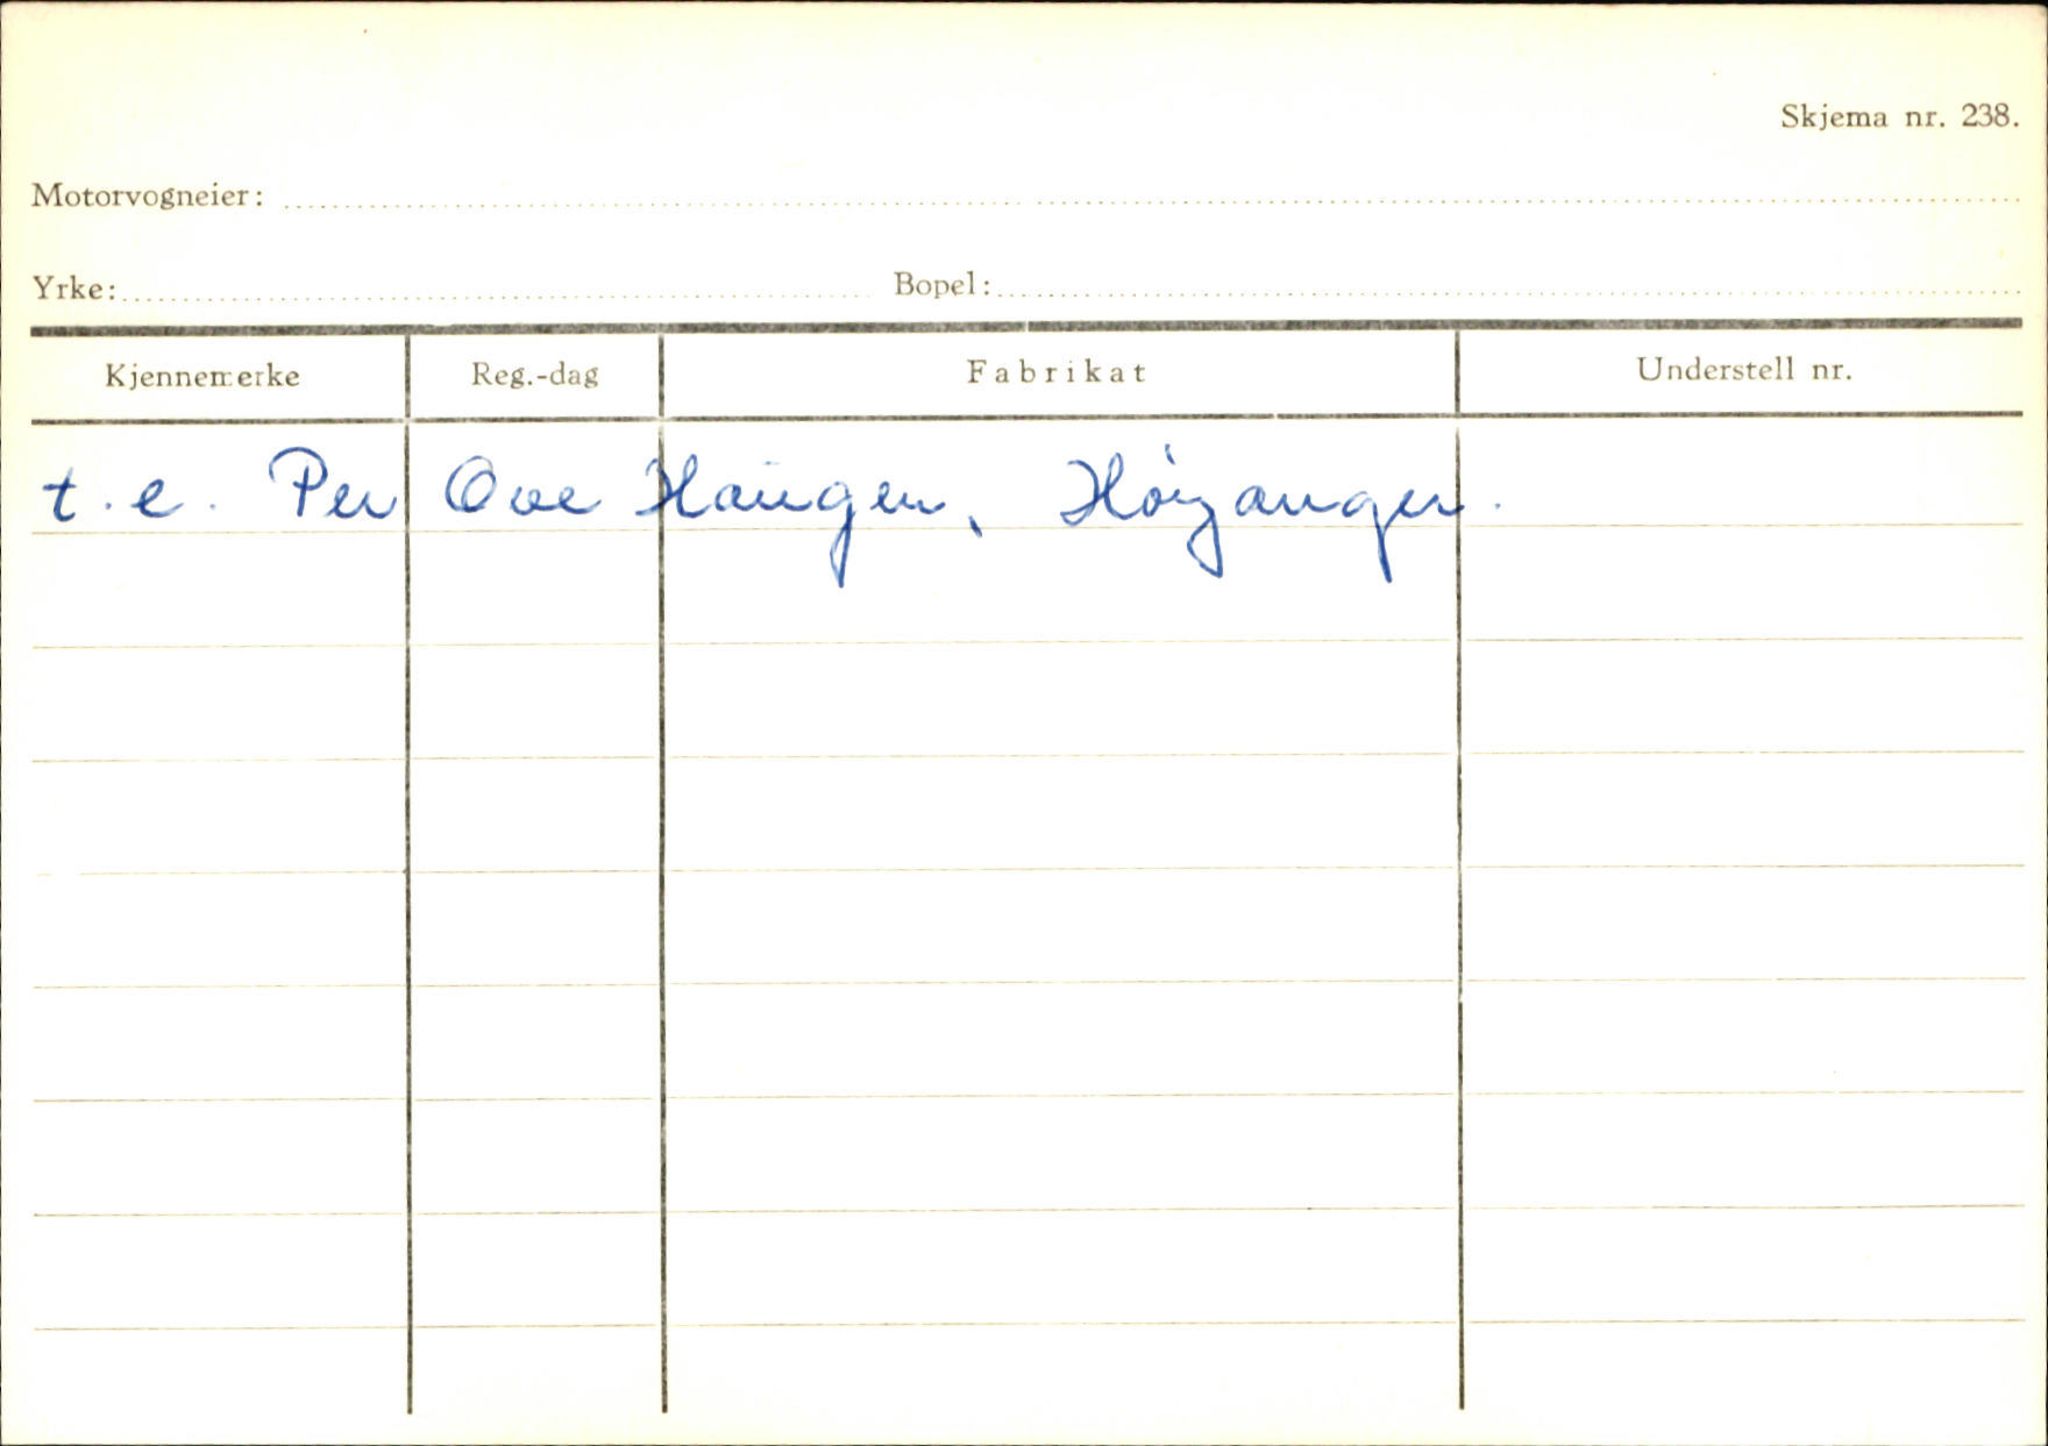 Skjema nr. 238.
Motorvogneier:
Yrke: Bopel:
Kjennemerke Reg.-dag Fabrikat Understell nr.
t.e. Per Ove Haugen, Høyanger.